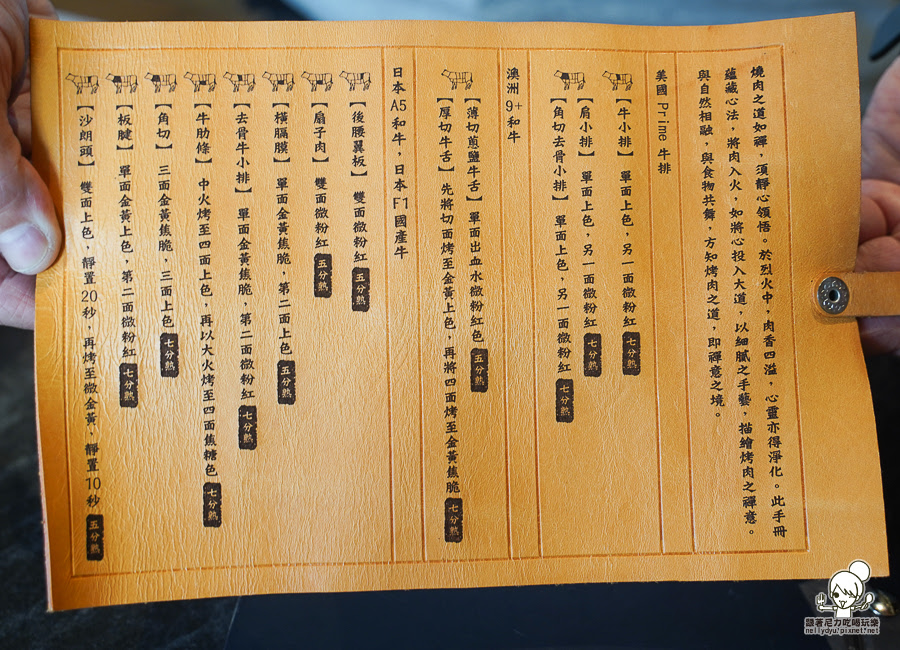 燒肉之道如禪，須靜心領悟。於烈火中，肉香四溢，心靈亦得淨化。此手冊
蘊藏心法，將肉入火，如將心投入大道，以細膩之手藝，描繪烤肉之禪意。
與自然相融，與食物共舞，方知烤肉之道，即禪意之境。
美國 Prime 牛排
【牛小排】 單面上色，另一面微粉紅 七分熟
【肩小排】 單面上色，另一面微粉紅 七分熟
【角切去骨小排】 單面上色，另一面微粉紅 七分熟
澳洲 9+ 和牛
【薄切煎鹽牛舌】 單面出血水微粉紅色 五分熟
【厚切牛舌】 先將切面烤至金黃上色，再將四面烤至金黃焦脆 七分熟
日本 A5 和牛，日本 F1 國產牛
【後腰翼板】 雙面微粉紅 五分熟
【扇子肉】 雙面微粉紅 五分熟
【橫膈膜】 單面金黃焦脆，第二面上色 五分熟
【去骨牛小排】 單面金黃焦脆，第二面微粉紅 七分熟
【牛肋條】 中火烤至四面上色，再以大火烤至四面焦糖色 七分熟
【角切】 三面金黃焦脆，三面上色 七分熟
【板腱】 單面金黃上色，第二面微粉紅 七分熟
【沙朗頭】 雙面上色，靜置 20 秒，再烤至微金黃、靜置 10 秒 五分熟
跟著尼力吃喝玩樂
nellydyu.pixnet.net